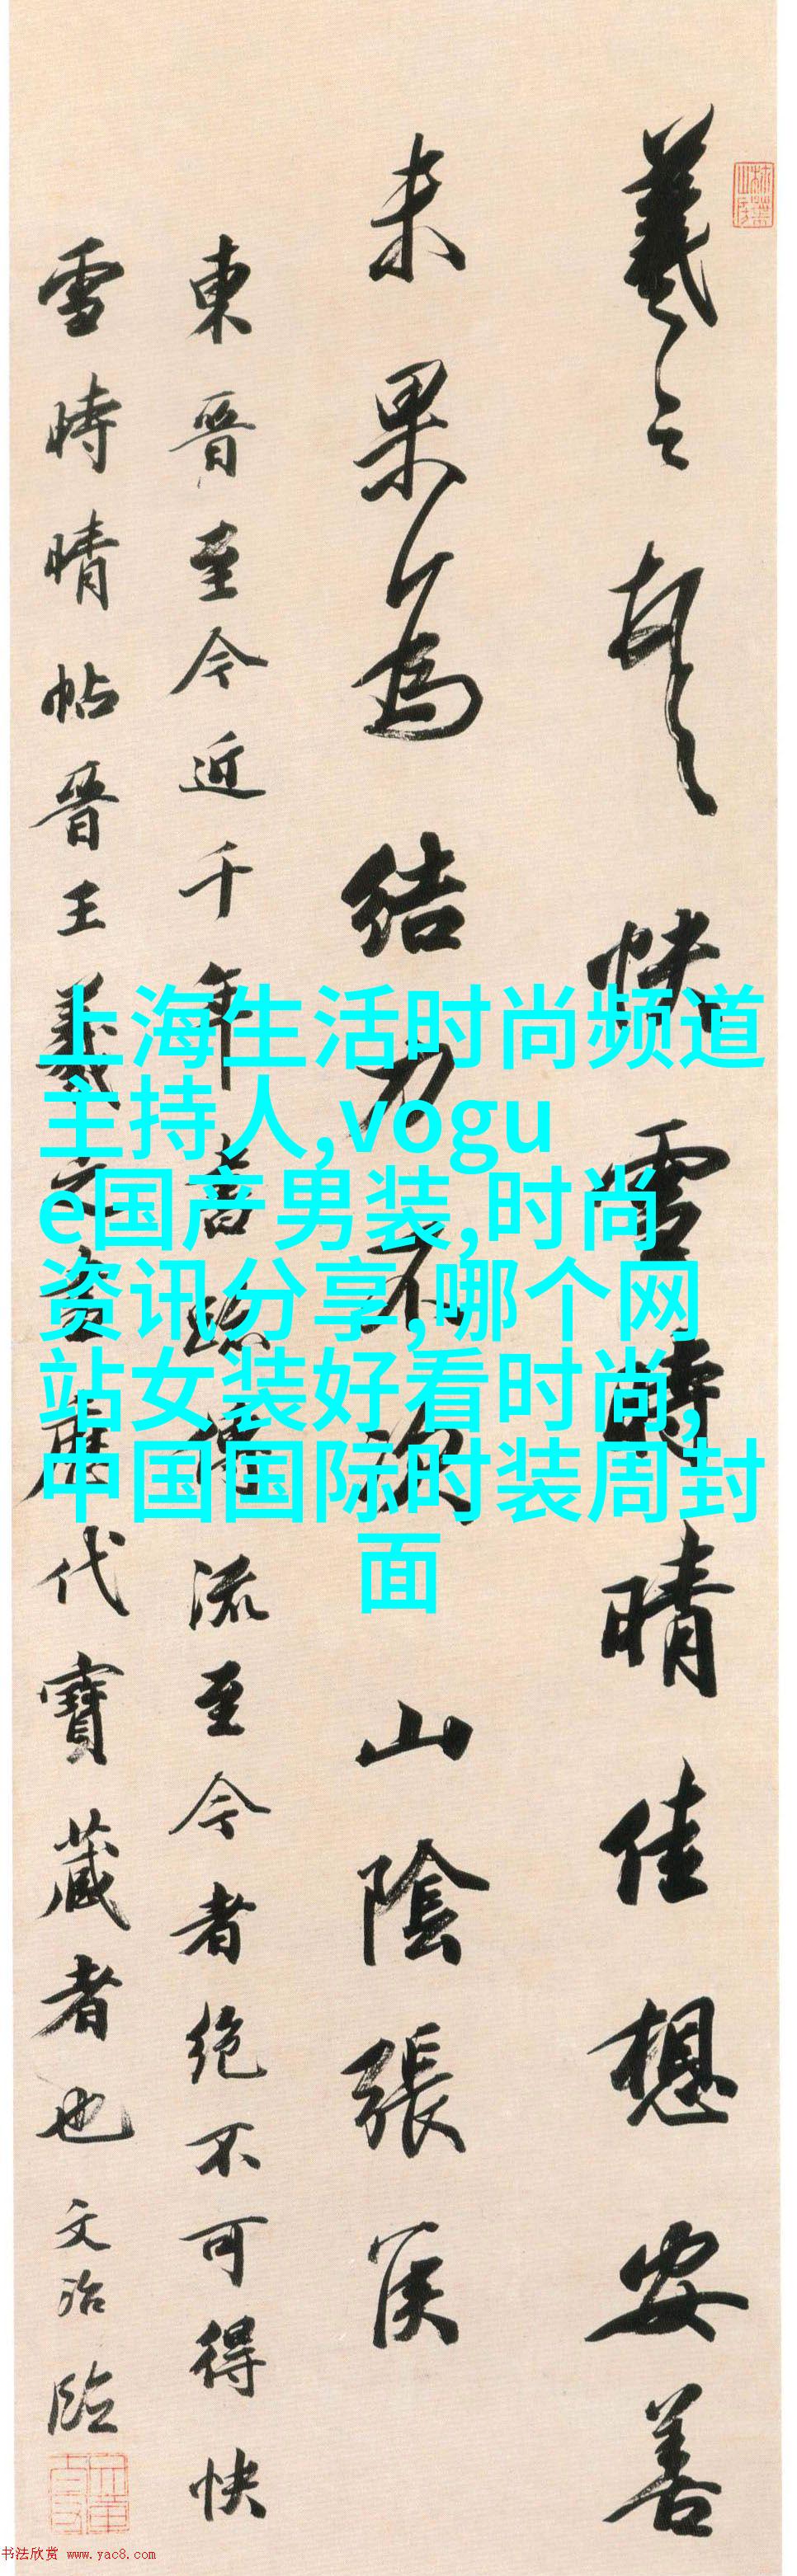 羲之頓首快雪時晴佳想安善
未果為結力不次山陰張侯
東晉至今近千年書蹟傳流至今者絕不可得快
雪時晴帖晉王羲之書歷代寶藏者也文治臨
上海生活时尚频道
主持人,vogu
e国产男装,时尚
资讯分享,哪个网
站女装好看时尚,
中国国际时装周封
面
书法欣赏 www.yac8.com